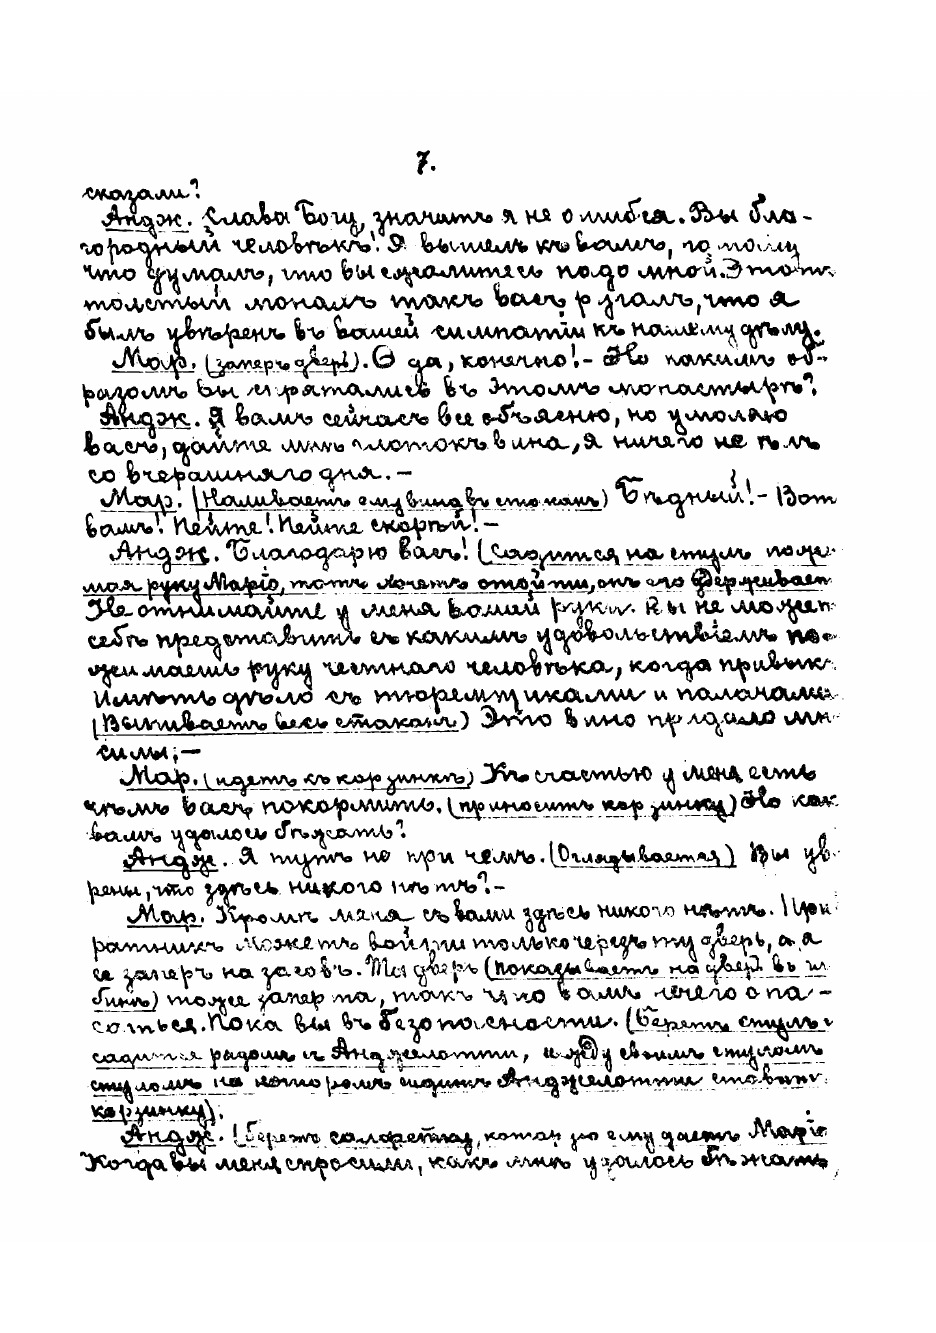 7.
сказали?
Андж. Слава Богу, значитъ я не ошибся. Вы бла-
городный человѣкъ! Я вышелъ къ вамъ, потому
что думалъ, что вы сжалитесь подо мной. Этотъ
толстый монахъ такъ васъ ругалъ, что я
былъ увѣренъ въ вашей симпатіи къ нашему дѣлу.
Мар. (заперъ дверь). О да, конечно! - Но какимъ об-
разомъ вы спрятались въ этомъ монастырѣ?
Андж. Я вамъ сейчасъ все объясню, но умоляю
васъ, дайте мнѣ глотокъ вина, я ничего не ѣлъ
со вчерашняго дня. -
Мар. (Наливаетъ ему вина въ стаканъ) Бѣдный! - Вот
вамъ! Пейте! Пейте скорѣй! -
Андж. Благодарю васъ! (Садится на стулъ пожи-
мая руку Маріо, тотъ хочетъ отойти, онъ его удерживает
Не отнимайте у меня вашей руки. Вы не может
себѣ представить съ какимъ удовольствіемъ по-
жимаешь руку честнаго человѣка, когда привык
имѣть дѣло съ тюремщиками и палачами
(Выпиваетъ весь стаканъ) Это вино придало мн
силы; -
Мар. (идетъ къ корзинкѣ) Къ счастью у меня есть
чѣмъ васъ покормить. (приноситъ корзинку) Но как
вамъ удалось бѣжать?
Андж. Я тутъ не при чемъ. (Оглядывается) Вы ув-
рены, что здѣсь никого нѣтъ? -
Мар. Кромѣ меня съ вами здѣсь никого нѣтъ. При
вратникъ можетъ войти только черезъ ту дверь, а я
ее заперъ на засовъ. Та дверь (показываетъ на дверь въ
тоже заперта, такъ что вамъ нечего опа-
саться. Пока вы въ безопасности. (Беретъ стулъ и
садится рядомъ съ Анджелотти, между своимъ стуломъ
стуломъ на которомъ сидитъ Анджелотти ставит
корзинку).
Андж. (беретъ салфетку, которую ему даетъ Маріо
Когда вы меня спросили, какъ мнѣ удалось бѣжать,